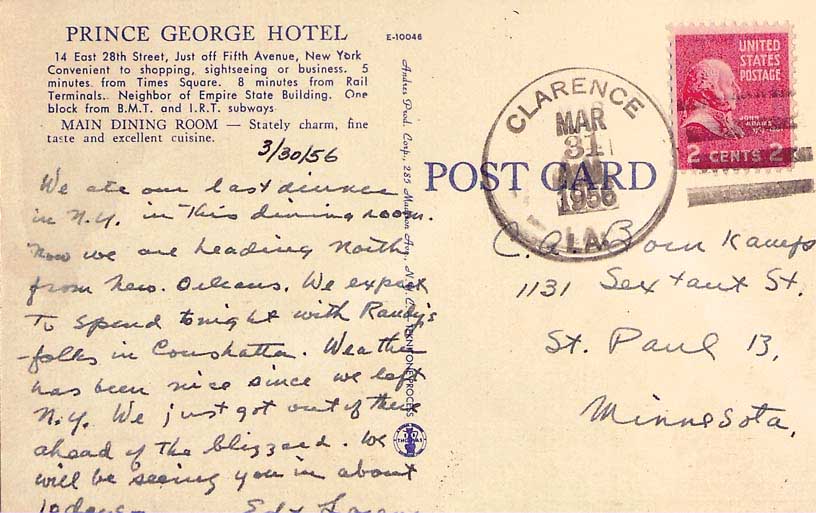 PRINCE GEORGE HOTEL
14 East 28th Street, Just off Fifth Avenue, New York
Convenient to shopping, sightseeing or business. 5
minutes from Times Square. 8 minutes from Rail
Terminals. Neighbor of Empire State Building. One
block from B.M.T. and I.R.T. subways
MAIN DINING ROOM — Stately charm, fine
taste and excellent cuisine.
3/30/56
We ate our last dinner
in N.Y. in this dining room.
Now we are heading North
from New. Orleans. We expect
to spend tonight with Randy's
folks in Coushatta. Weather
has been nice since we left
N.Y. We just got out of there
ahead of the blizzard. We
will be seeing you in about
10 days—
E-10046
Andres Prod. Corp., 285 Madison Ave., N.Y.C.
POST CARD
CLARENCE
MAR
31
AM
1956
LA.
UNITED
STATES
POSTAGE
JOHN
ADAMS
2 CENTS 2
C. A. Bornkamp
1131 Sextant St.
St. Paul 13,
Minnesota,